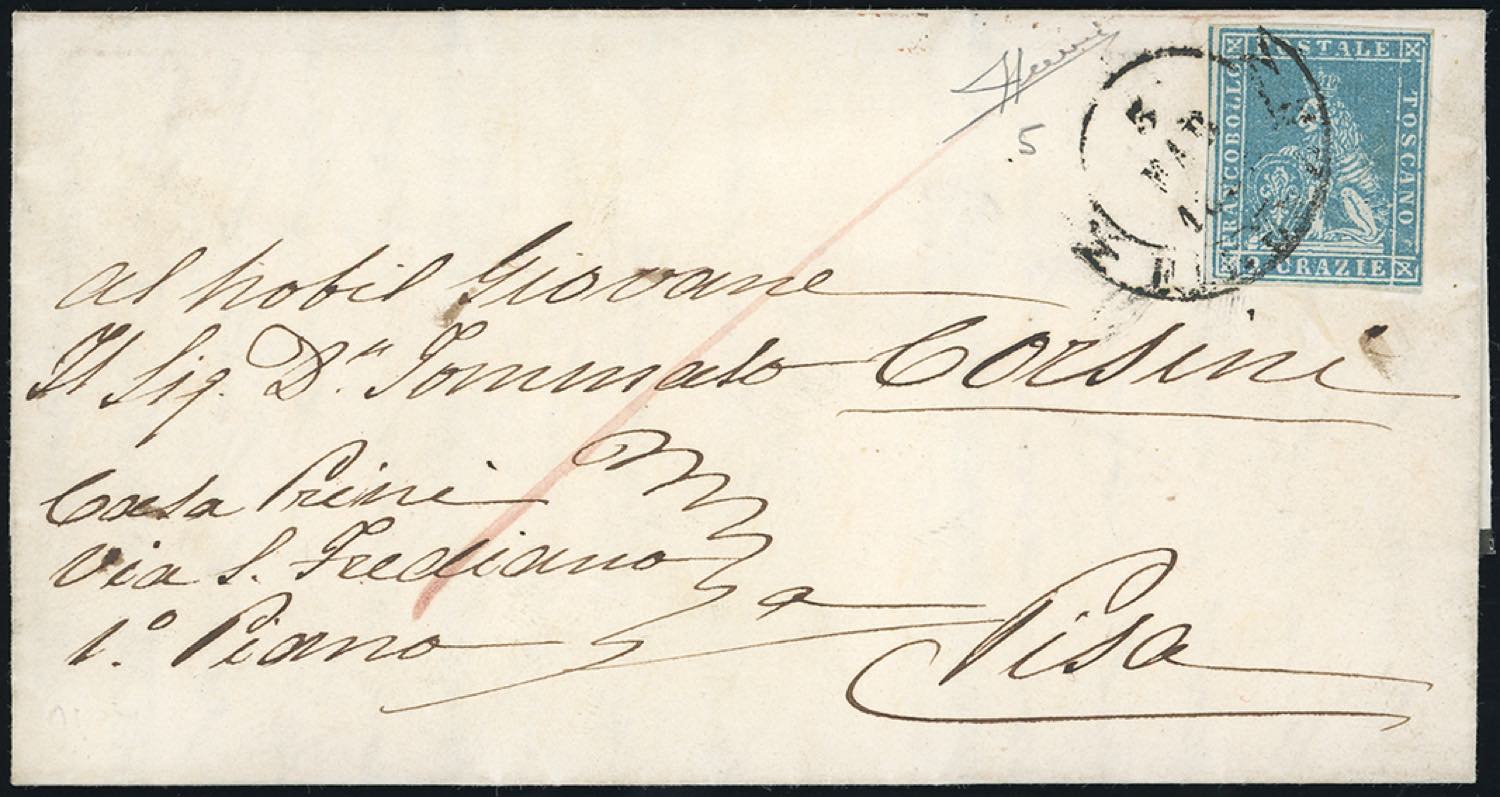 FRANCOBOLLO POSTALE TOSCANO
2 CRAZIE
5
MAR
5
al Nobil Giovane
Il Sig. Dr. Tommaso Corsini
Casa Prini
Via S. Frediano
1.º Piano
a Pisa